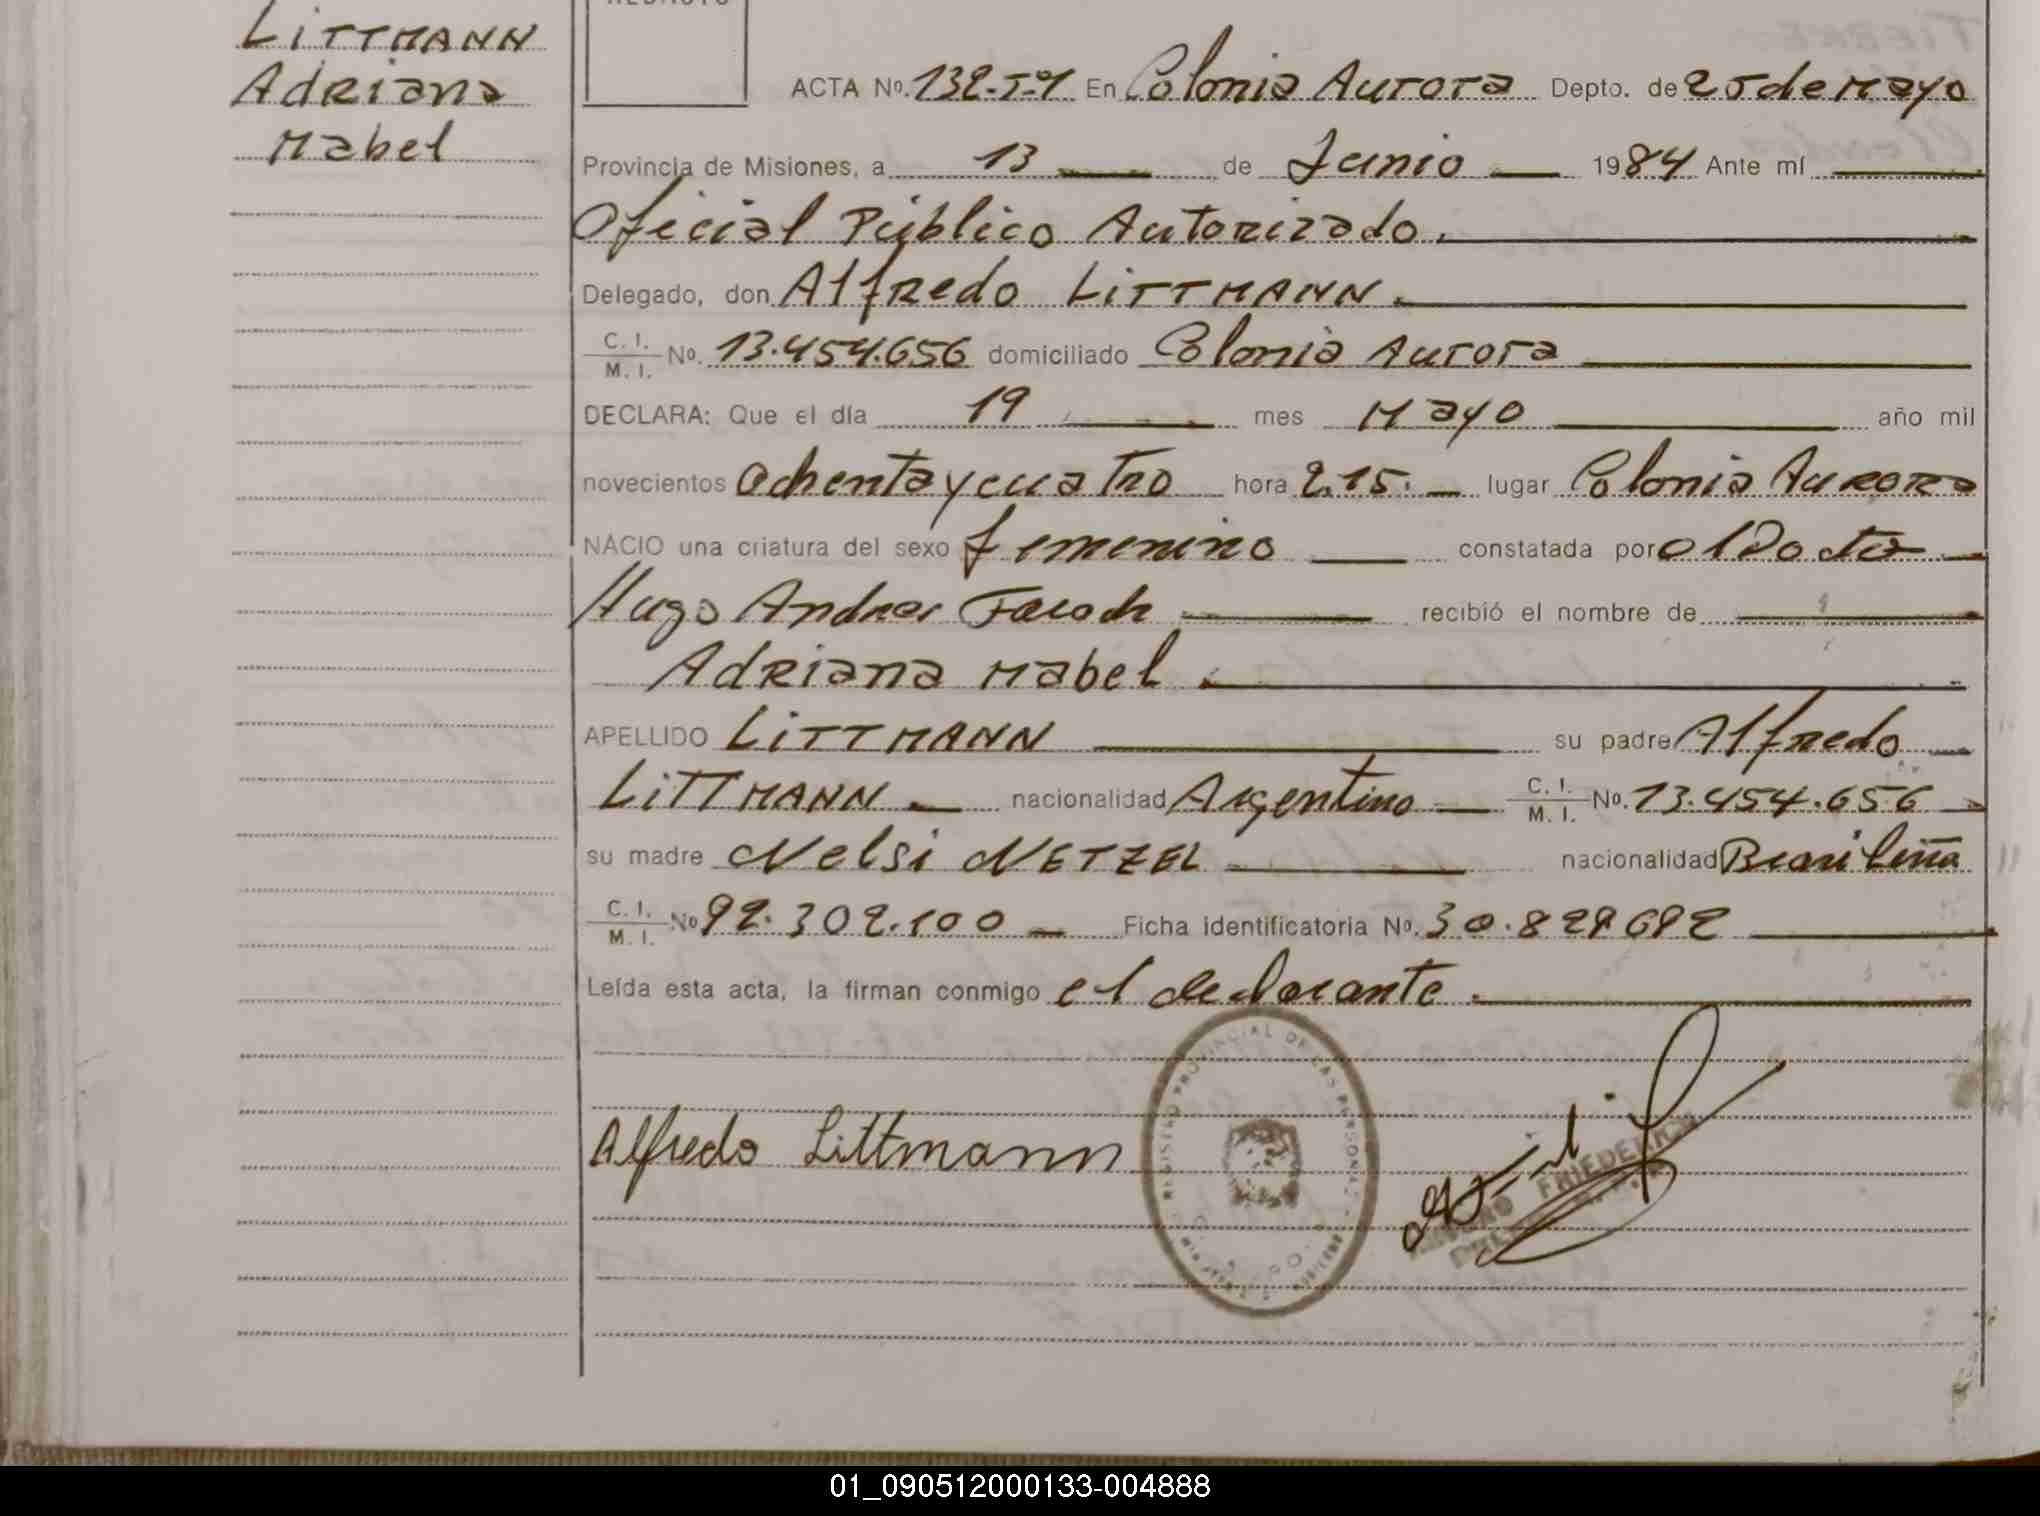 LITTMANN
Adriana
Mabel
ACTA No. 132-Tº1 En Colonia Aurora Depto. de 25 de Mayo
Provincia de Misiones, a 13 de Junio 1984 Ante mí
Oficial Público Autorizado.
Delegado, don Alfredo LITTMANN.
C. I. / M. I. No. 13.454.656 domiciliado Colonia Aurora
DECLARA: Que el día 19 mes Mayo año mil
novecientos ochenta y cuatro hora 2,15. lugar Colonia Aurora
NACIO una criatura del sexo femenino constatada por Doctor
Hugo Andres recibió el nombre de
Adriana Mabel.
APELLIDO LITTMANN su padre Alfredo
LITTMANN nacionalidad Argentino C. I. / M. I. No. 13.454.656
su madre Nelsi NETZEL nacionalidad Brasileña
C. I. / M. I. No 92.302.100 Ficha identificatoria No. 30.829.692
Leída esta acta, la firman conmigo el declarante.
REGISTRO PROVINCIAL DE LAS PERSONAS
Alfredo Littmann
FRIEDERICH
01_090512000133-004888